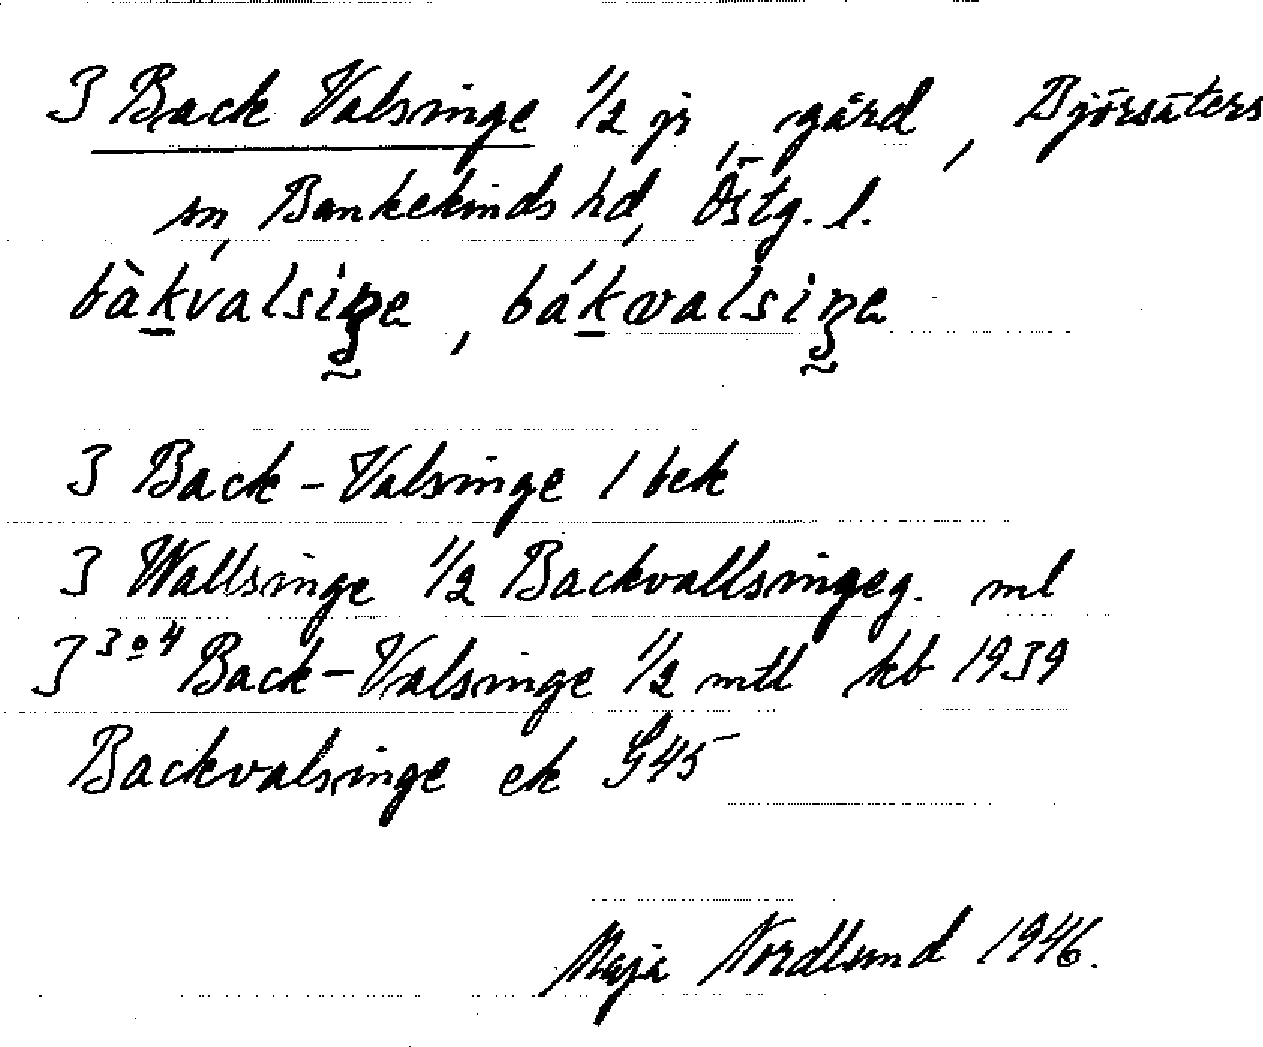 3 Back Valsinge 1/2 jr, gård, Björsäters
sn, Bankekinds hd, Östg. l.
bàkvalsiŋe, bákvalsiŋe
3 Back-Valsinge 1 bek
3 Wallsinge 1/2 Backvallsingeg. ml
3 3 o 4 Back-Valsinge 1/2 mtl kb 1939
Backvalsinge ek G45
Maja Nordlund 1946.